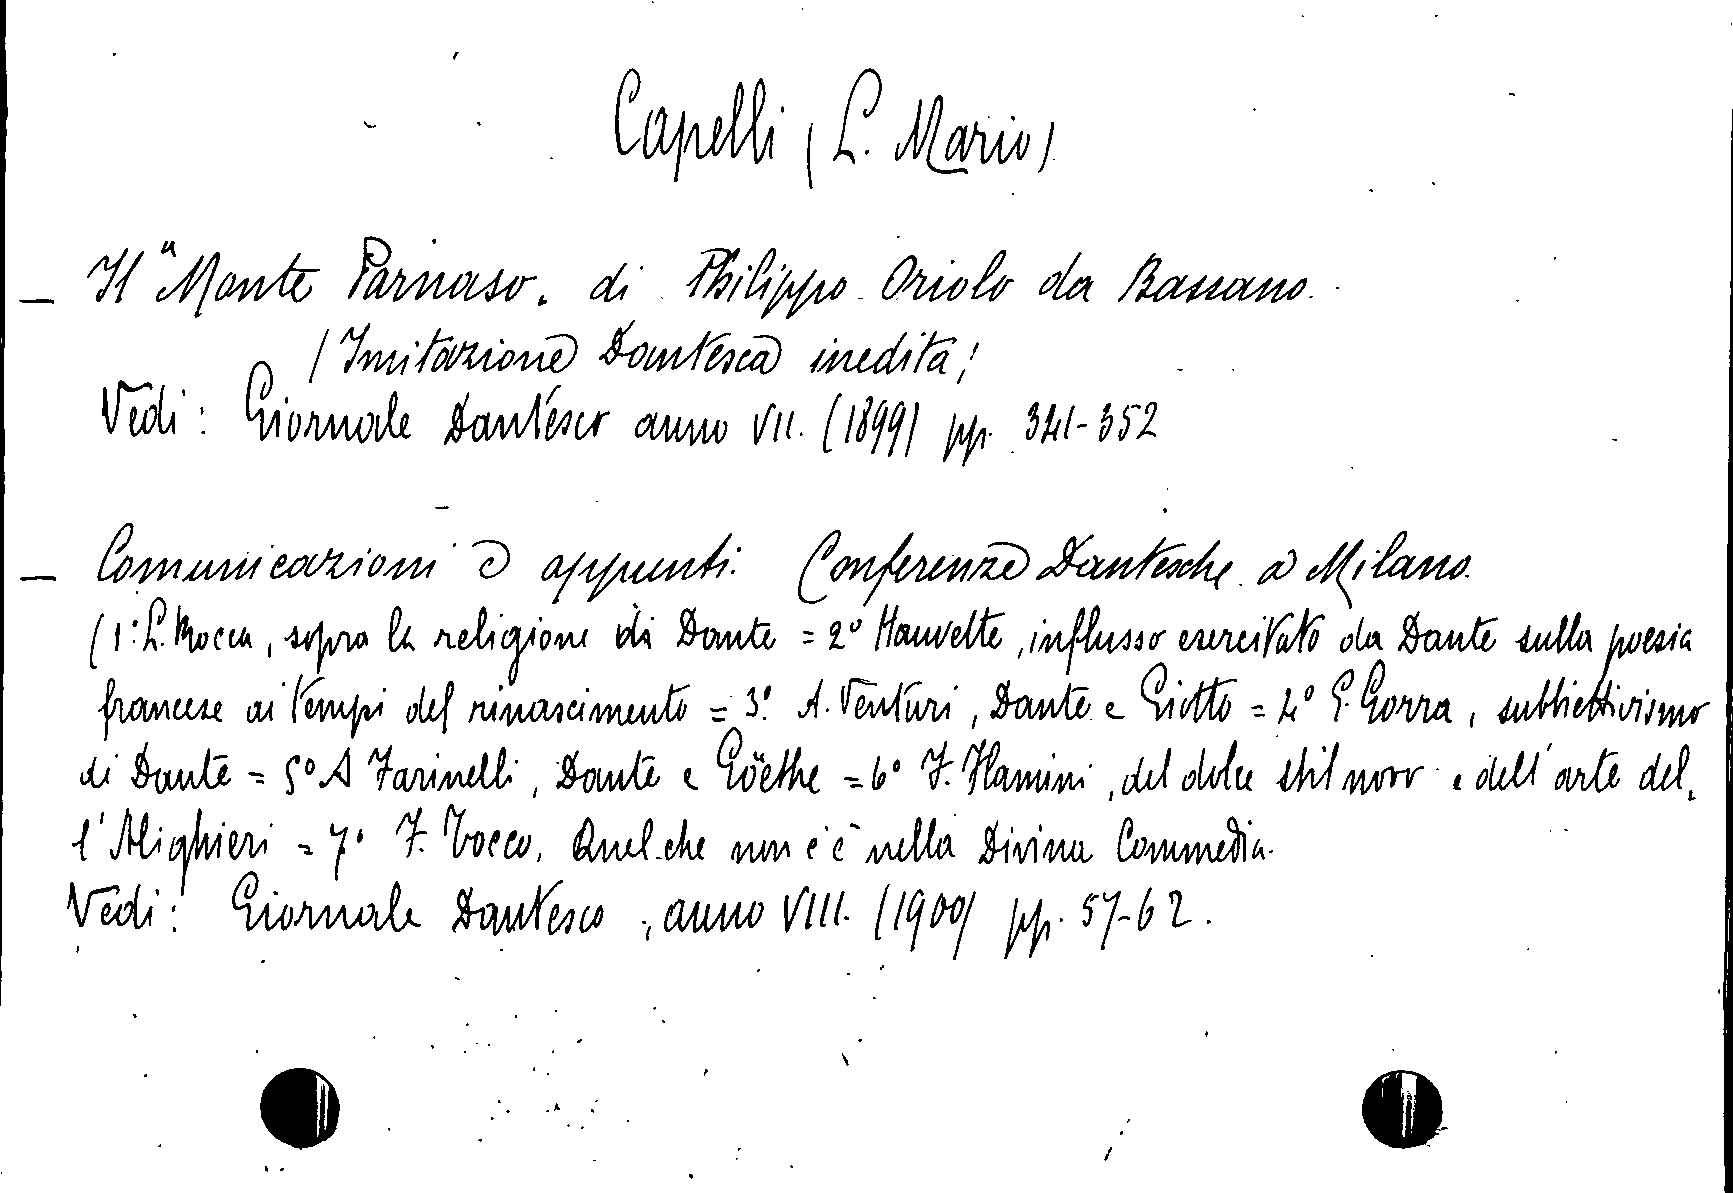 Capelli (L. Mario)
— Il "Monte Parnaso„ di Philippo Oriolo da Bassano.
(Imitazione Dantesca inedita)
Vedi: Giornale Dantesco anno VII. (1899) pp. 341-352
— Comunicazioni e appunti. Conferenze Dantesche a Milano.
(1° L. Rocca, sopra la religione di Dante = 2° Hauvette, influsso esercitato da Dante sulla poesia
francese ai tempi del rinascimento = 3° A. Venturi, Dante e Giotto = 4° E. Gorra, subbiettivismo
di Dante = 5° A Farinelli, Dante e Göethe = 6° F. Flamini, del dolce stil novo e dell'arte del-
l'Alighieri = 7° F. Tocco, Quel che non c'è nella Divina Commedia.
Vedi: Giornale Dantesco, anno VIII. (1900) pp. 57-62.